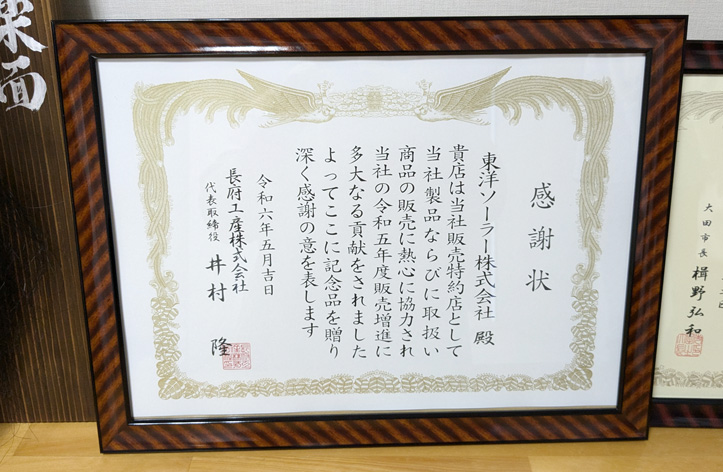 感謝状
東洋ソーラー株式会社 殿
貴店は当社販売特約店として
当社製品ならびに取扱い
商品の販売に熱心に協力され
当社の令和五年度販売増進に
多大なる貢献をされました
よってここに記念品を贈り
深く感謝の意を表します
令和六年五月吉日
長府工産株式会社
代表取締役 井村 隆
大田市長 楫野弘和
面